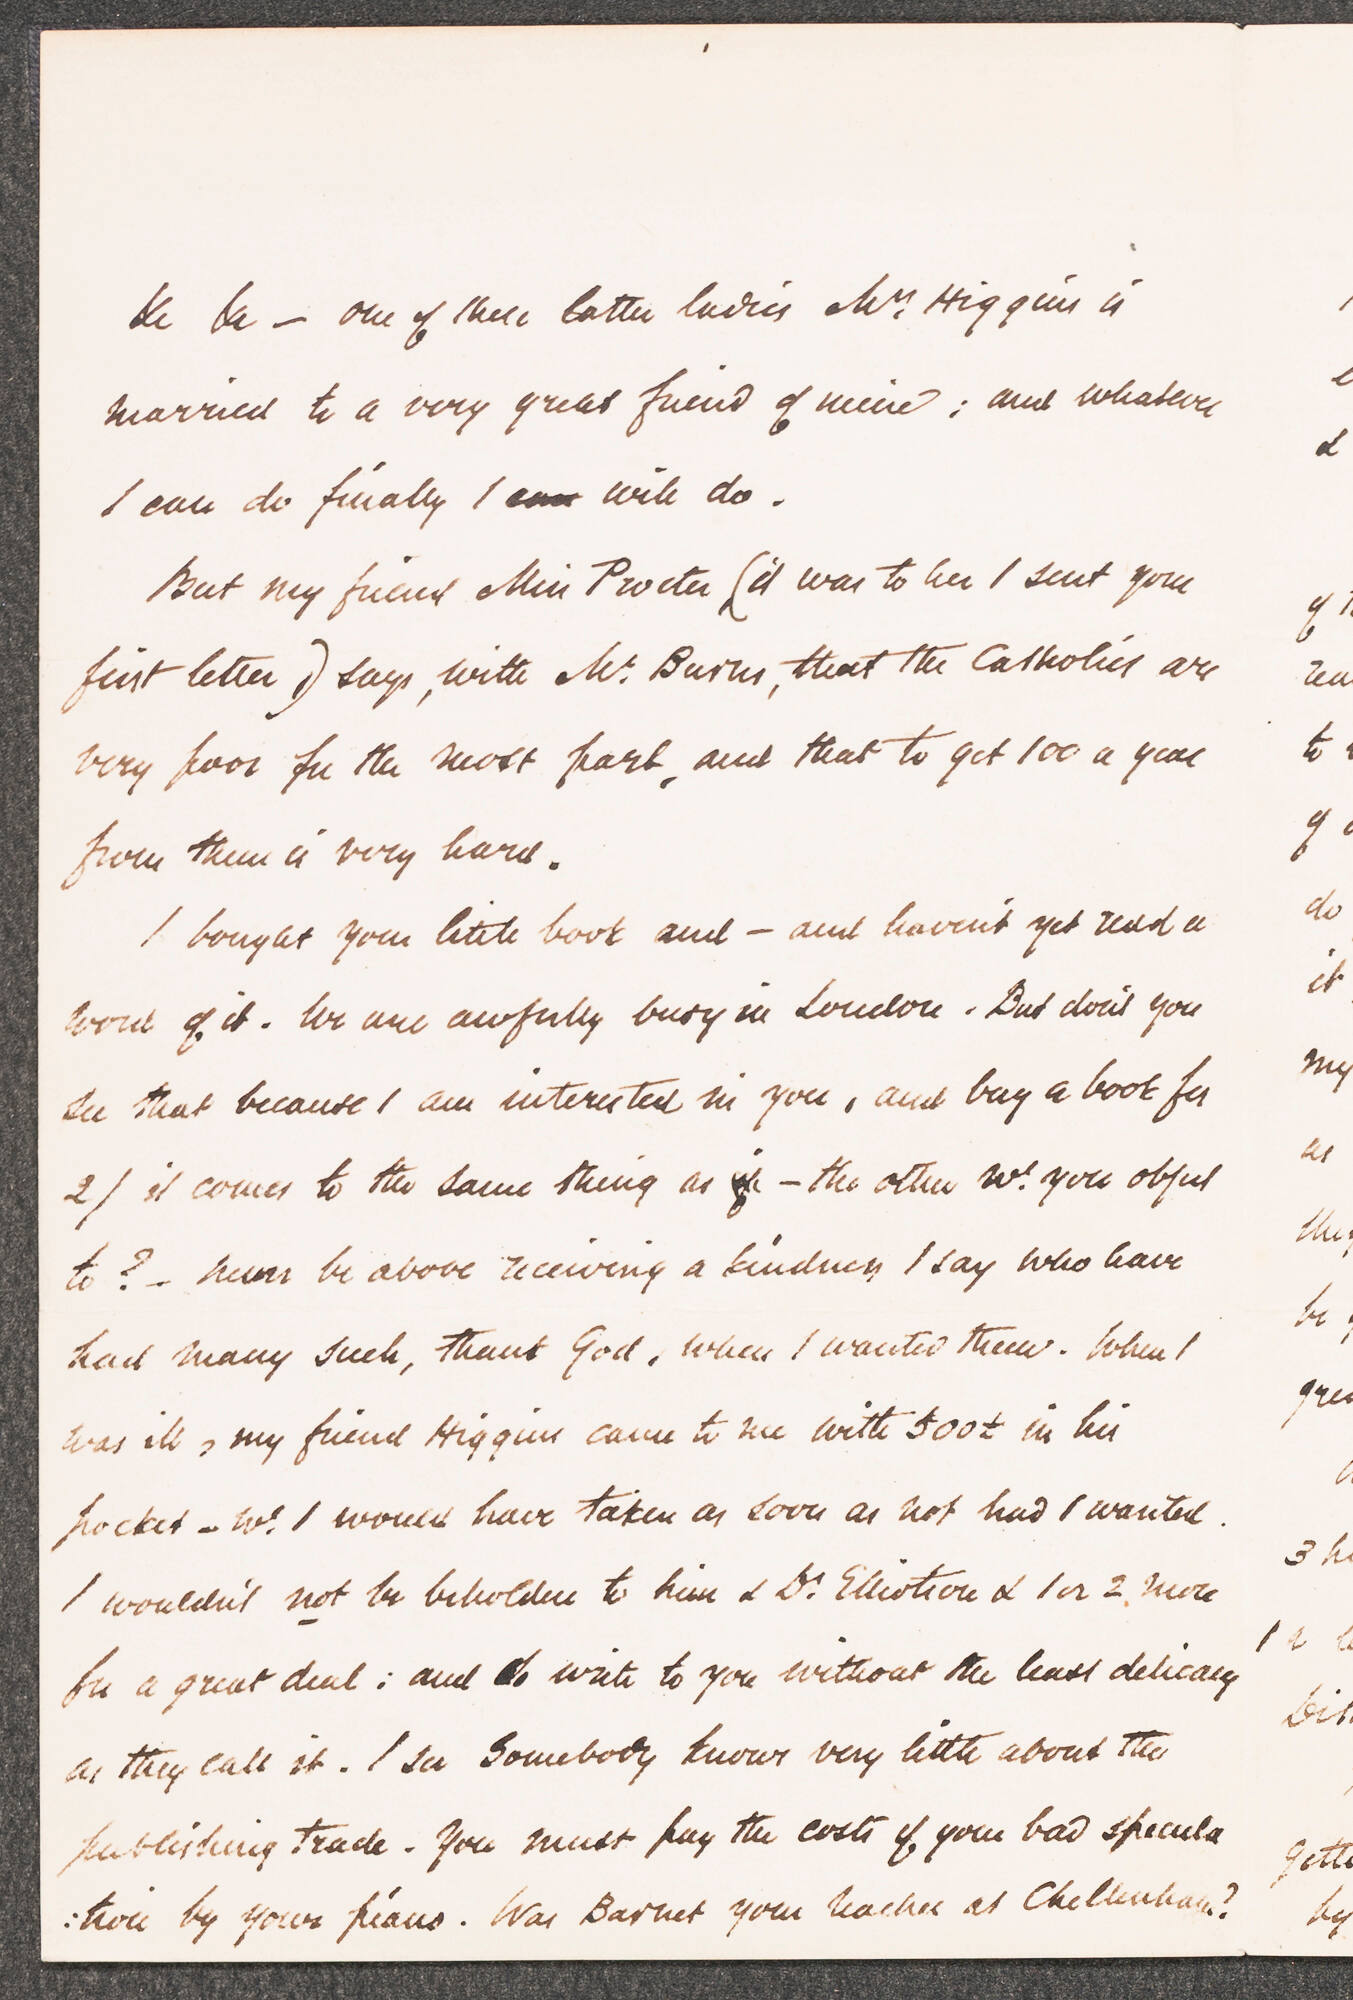 &c &c — one of these latter ladies Mrs. Higgins is
married to a very great friend of mine; and whatever
I can do finally I can will do.
But my friend Miss Procter (it was to her I sent your
first letter,) says, with Mr. Burns, that the Catholics are
very poor for the most part, and that to get 100 a year
from them is very hard.
I bought your little book and — and haven't yet read a
word of it. We are awfully busy in London. But don't you
see that because I am interested in you, and buy a book for
2/ it comes to the same thing as — the other wh. you object
to? — Never be above receiving a kindness I say who have
had many such, thank God, when I wanted them. When I
was ill, my friend Higgins came to me with 500£ in his
pocket — wh. I would have taken as soon as not had I wanted.
I wouldn't not be beholden to him & Dr. Elliotson & 1 or 2 more
for a great deal: and so write to you without the least delicacy
as they call it. I see Somebody knows very little about the
publishing trade. You must pay the costs of your bad specula
:tion by your piano. Was Barnet your teacher at Cheltenham?